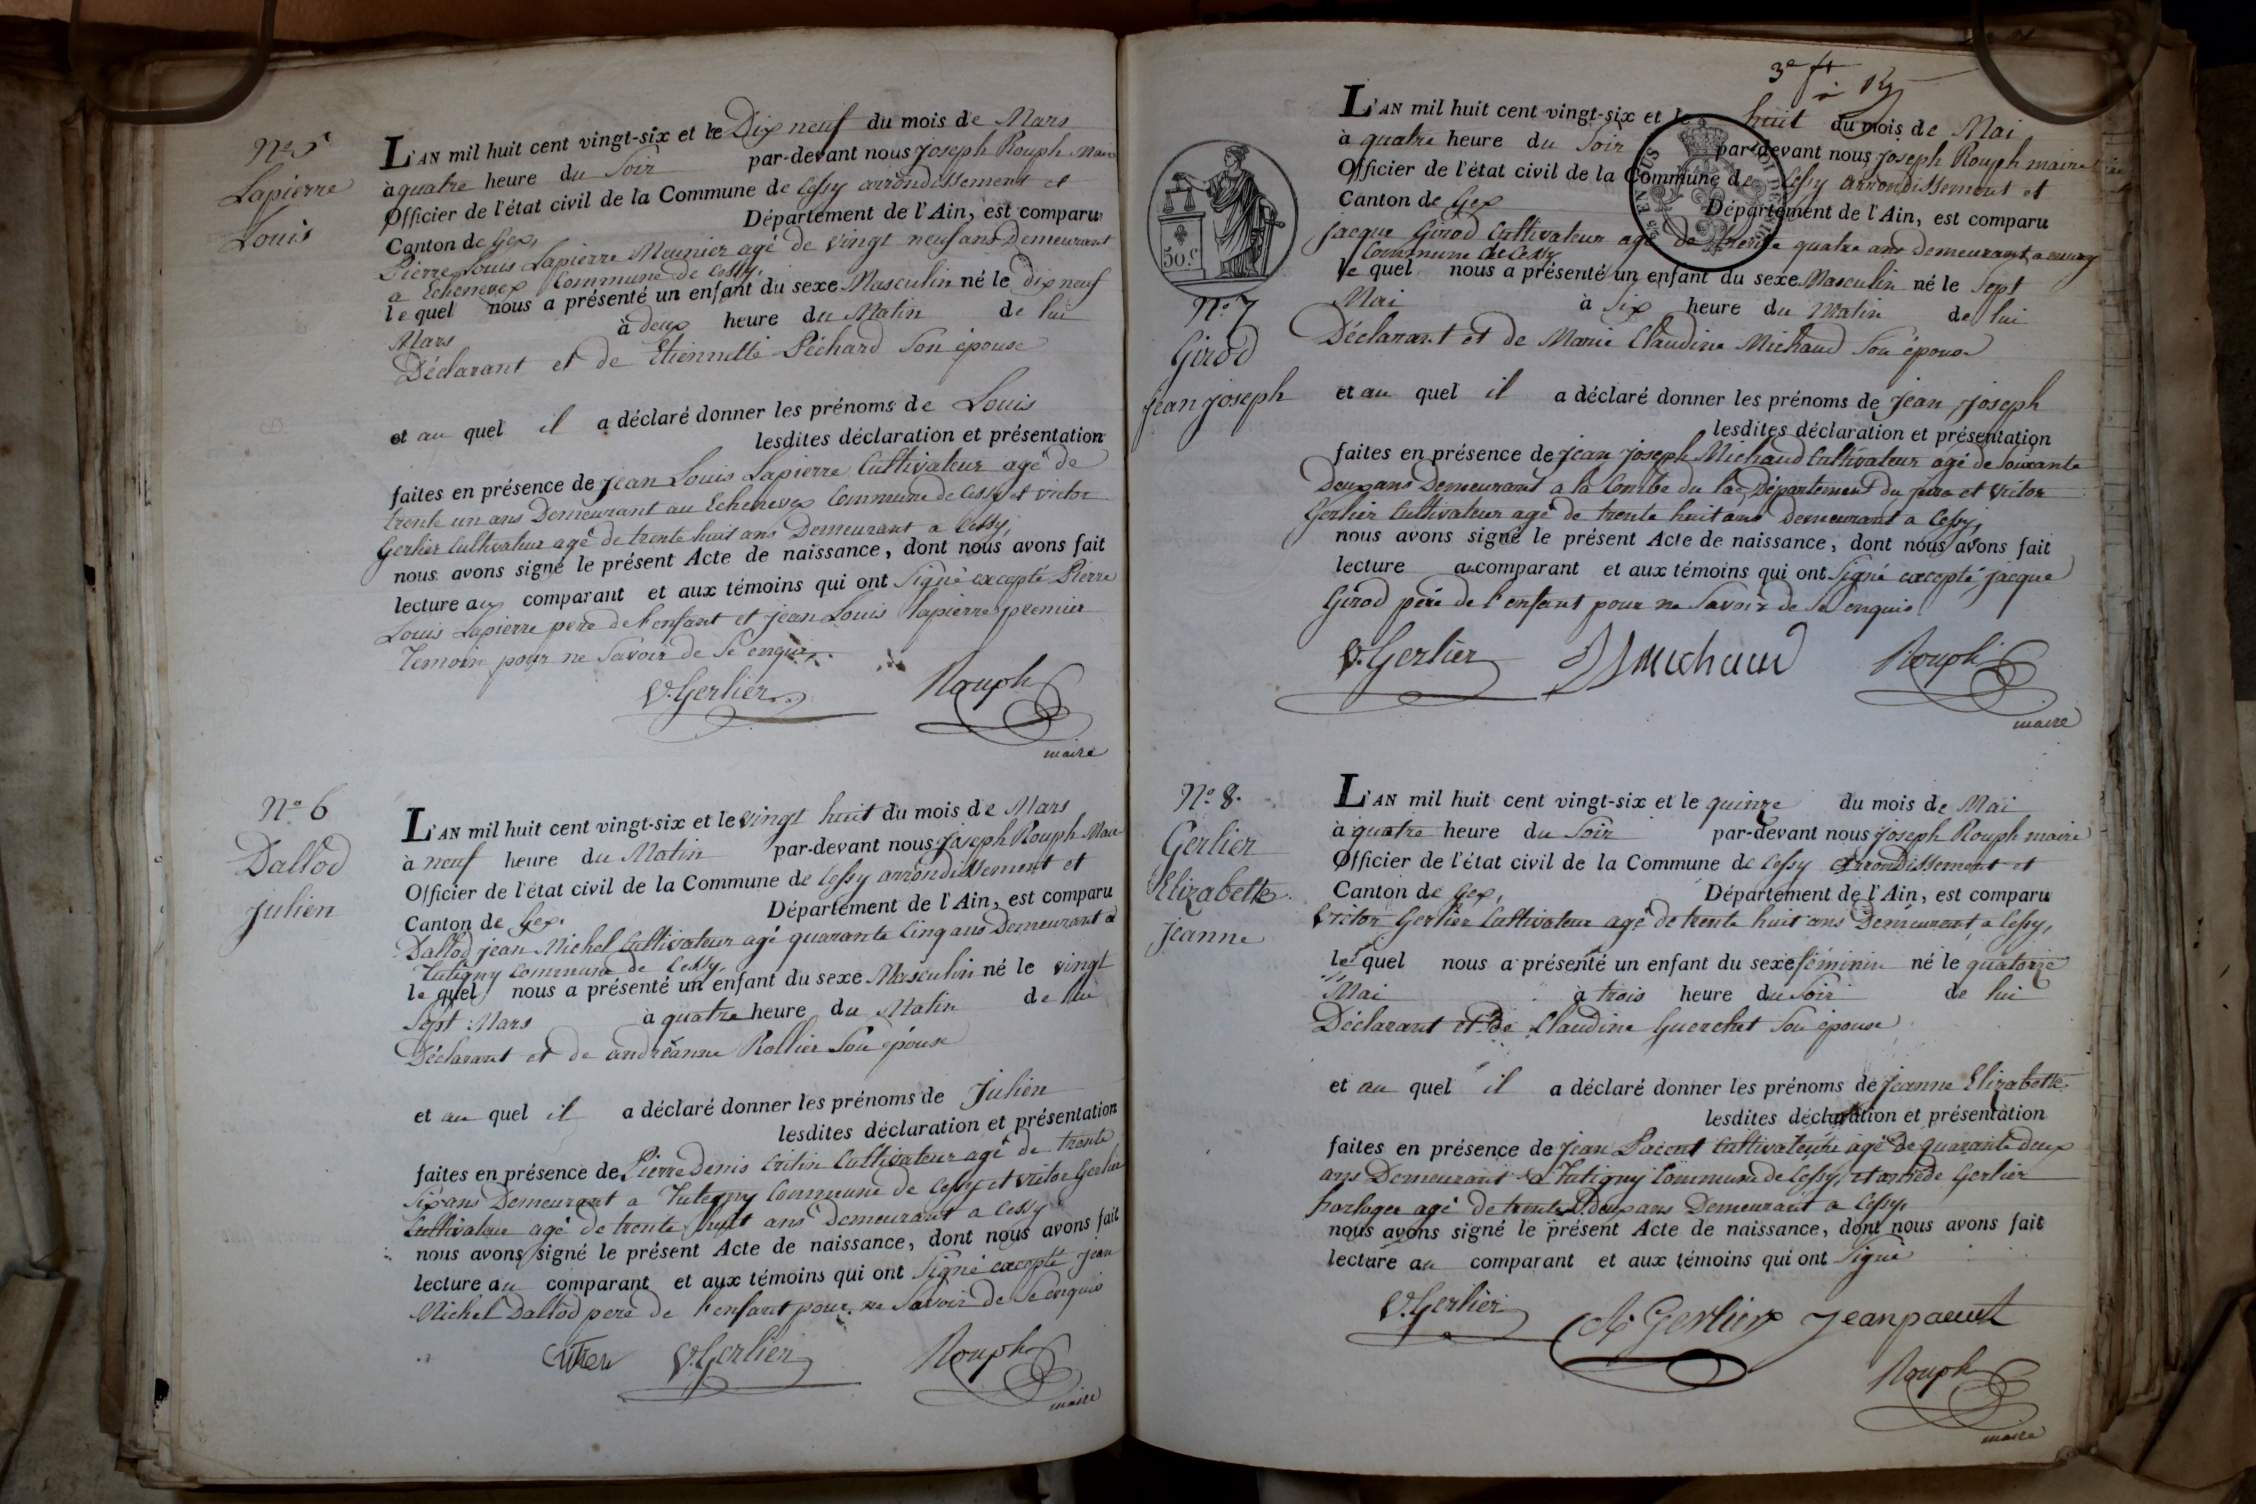 N.º 5
Lapierre
Louis
L'AN mil huit cent vingt-six et le Dix neuf du mois de Mars
à quatre heure du Soir par-devant nous Joseph Rouph Maire
Officier de l'état civil de la Commune de Cessy arrondissement et
Canton de Gex, Département de l'Ain, est comparu
Pierre Louis Lapierre Meunier agé de vingt neuf ans Demeurant
a Echenevex Commune de Cessy,
le quel nous a présenté un enfant du sexe Masculin né le dix neuf
Mars à deux heure du Matin de lui
Déclarant et de Etiennette Péchard Son épouse
et au quel il a déclaré donner les prénoms de Louis
lesdites déclaration et présentation
faites en présence de Jean Louis Lapierre Cultivateur agé de
trente un ans Demeurant au Echenevex Commune de Cessy et victor
Gerlier Cultivateur agé de trente huit ans Demeurant a Cessy,
nous avons signé le présent Acte de naissance, dont nous avons fait
lecture au comparant et aux témoins qui ont Signé excepté Pierre
Louis Lapierre pere de l'enfant et jean Louis lapierre premier
Temoin pour ne Savoir de Ce enquis
V. Gerlier Rouph
maire
N.º 6
Dallod
Julien
L'AN mil huit cent vingt-six et le vingt huit du mois de Mars
à neuf heure du Matin par-devant nous Joseph Rouph Maire
Officier de l'état civil de la Commune de Cessy arrondissement et
Canton de Gex. Département de l'Ain, est comparu
Dallod jean Michel Cultivateur agé quarante Cinq ans Demeurant a
Tutigny Commune de Cessy,
le quel nous a présenté un enfant du sexe Masculin né le vingt
Sept Mars à quatre heure du Matin de lui
Déclarant et de andréanne Rollier Son épouse
et au quel il a déclaré donner les prénoms de Julien
lesdites déclaration et présentation
faites en présence de Pierre Denis Critin Cultivateur agé de trente
Six ans Demeurant a Tutigny Commune de Cessy et victor Gerlier
Cultivateur agé de trente huit ans demeurant a Cessy
nous avons signé le présent Acte de naissance, dont nous avons fait
lecture au comparant et aux témoins qui ont Signé excepté Jean
Michel Dallod pere de l'enfant pour ne Savoir de Ce enquis
V. Gerlier Rouph
maire
3e ft
50.c
N.º 7
Girod
Jean Joseph
L'AN mil huit cent vingt-six et le huit du mois de Mai
à quatre heure du Soir par-devant nous Joseph Rouph maire
Officier de l'état civil de la Commune de Cessy arrondissement et
Canton de Gex Département de l'Ain, est comparu
jacque Girod Cultivateur agé de trente quatre ans demeurant a
Commune de Cessy
le quel nous a présenté un enfant du sexe Masculin né le Sept
Mai à Six heure du Matin de lui
Déclarant et de Marie Claudine Michaud Son épouse
et au quel il a déclaré donner les prénoms de Jean Joseph
lesdites déclaration et présentation
faites en présence de Jean Joseph Michaud Cultivateur agé de Soixante
Deux ans Demeurant a la Combe du lac Département du jura et victor
Gerlier Cultivateur agé de trente huit ans demeurant a Cessy,
nous avons signé le présent Acte de naissance, dont nous avons fait
lecture au comparant et aux témoins qui ont Signé excepté jacque
Girod père de l'enfant pour ne Savoir de Ce enquis
V. Gerlier JJ Michaud Rouph
maire
N.º 8.
Gerlier
Elizabette
Jeanne
L'AN mil huit cent vingt-six et le quinze du mois de Mai
à quatre heure du Soir par-devant nous Joseph Rouph maire
Officier de l'état civil de la Commune de Cessy arrondissement et
Canton de Gex, Département de l'Ain, est comparu
Victor Gerlier Cultivateur agé de trente huit ans Demeurant a Cessy,
le quel nous a présenté un enfant du sexe féminin né le quatorze
Mai à trois heure du Soir de lui
Déclarant et de Claudine Guerchet Son épouse
et au quel il a déclaré donner les prénoms de Jeanne Elizabette
lesdites déclaration et présentation
faites en présence de Jean Pacout Cultivateur agé de quarante deux
ans Demeurant a Tutigny Commune de Cessy, et Gerlier
horloger agé de trente deux ans Demeurant a Cessy,
nous avons signé le présent Acte de naissance, dont nous avons fait
lecture au comparant et aux témoins qui ont Signé
V. Gerlier A Gerlier Jean pacout
Rouph
maire